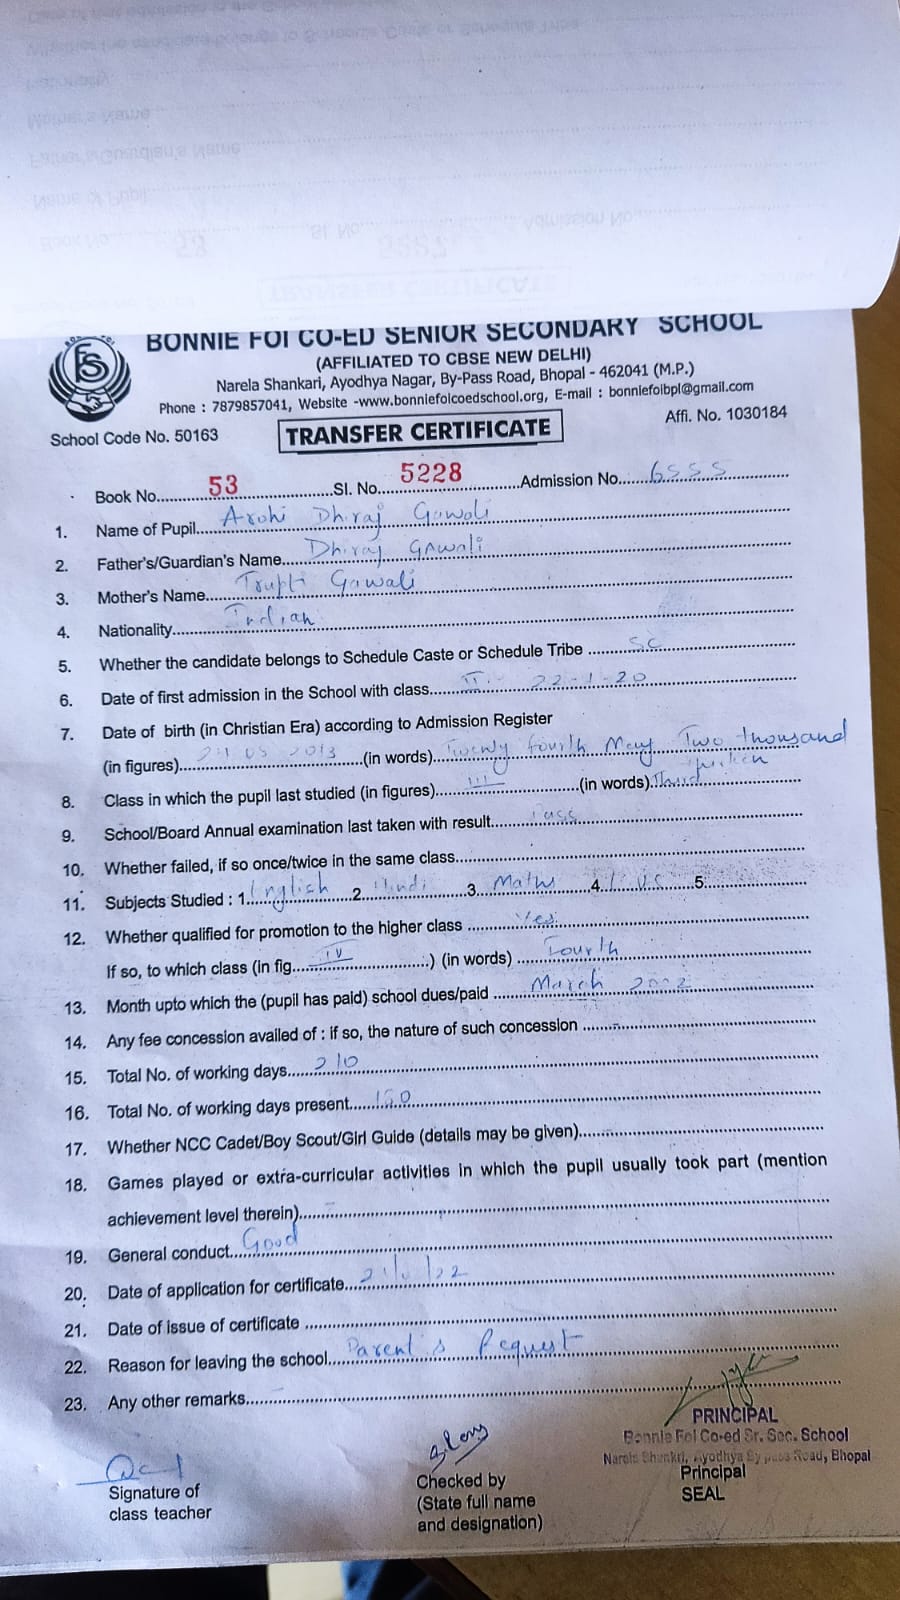 BONNIE FOI CO-ED SENIOR SECONDARY SCHOOL
(AFFILIATED TO CBSE NEW DELHI)
Narela Shankari, Ayodhya Nagar, By-Pass Road, Bhopal - 462041 (M.P.)
Phone : 7879857041, Website -www.bonniefolcoedschool.org, E-mail : bonniefoibpl@gmail.com
School Code No. 50163 TRANSFER CERTIFICATE Affi. No. 1030184
Book No. 53 Sl. No. 5228 Admission No. 6555
1. Name of Pupil Arohi Dhiraj Gawali
2. Father's/Guardian's Name Dhiraj Gawali
3. Mother's Name Trupti Gawali
4. Nationality Indian
5. Whether the candidate belongs to Schedule Caste or Schedule Tribe SC
6. Date of first admission in the School with class II 22-1-20
7. Date of birth (in Christian Era) according to Admission Register
(in figures) 24 05 2013 (in words) Twenty fourth May Two thousand
8. Class in which the pupil last studied (in figures) III (in words)
9. School/Board Annual examination last taken with result Pass
10. Whether failed, if so once/twice in the same class
11. Subjects Studied : 1. English 2. Hindi 3. Maths 4. 5.
12. Whether qualified for promotion to the higher class Yes
If so, to which class (in fig. IV ) (in words) Fourth
13. Month upto which the (pupil has paid) school dues/paid March 2022
14. Any fee concession availed of : if so, the nature of such concession
15. Total No. of working days 210
16. Total No. of working days present
17. Whether NCC Cadet/Boy Scout/Girl Guide (details may be given)
18. Games played or extra-curricular activities in which the pupil usually took part (mention
achievement level therein)
19. General conduct Good
20. Date of application for certificate
21. Date of issue of certificate
22. Reason for leaving the school Parent's Request
23. Any other remarks
PRINCIPAL
Bonnie Foi Co-ed Sr. Sec. School
Narela Shankri, Ayodhya By pass Road, Bhopal
Signature of
class teacher
Checked by
(State full name
and designation)
Principal
SEAL